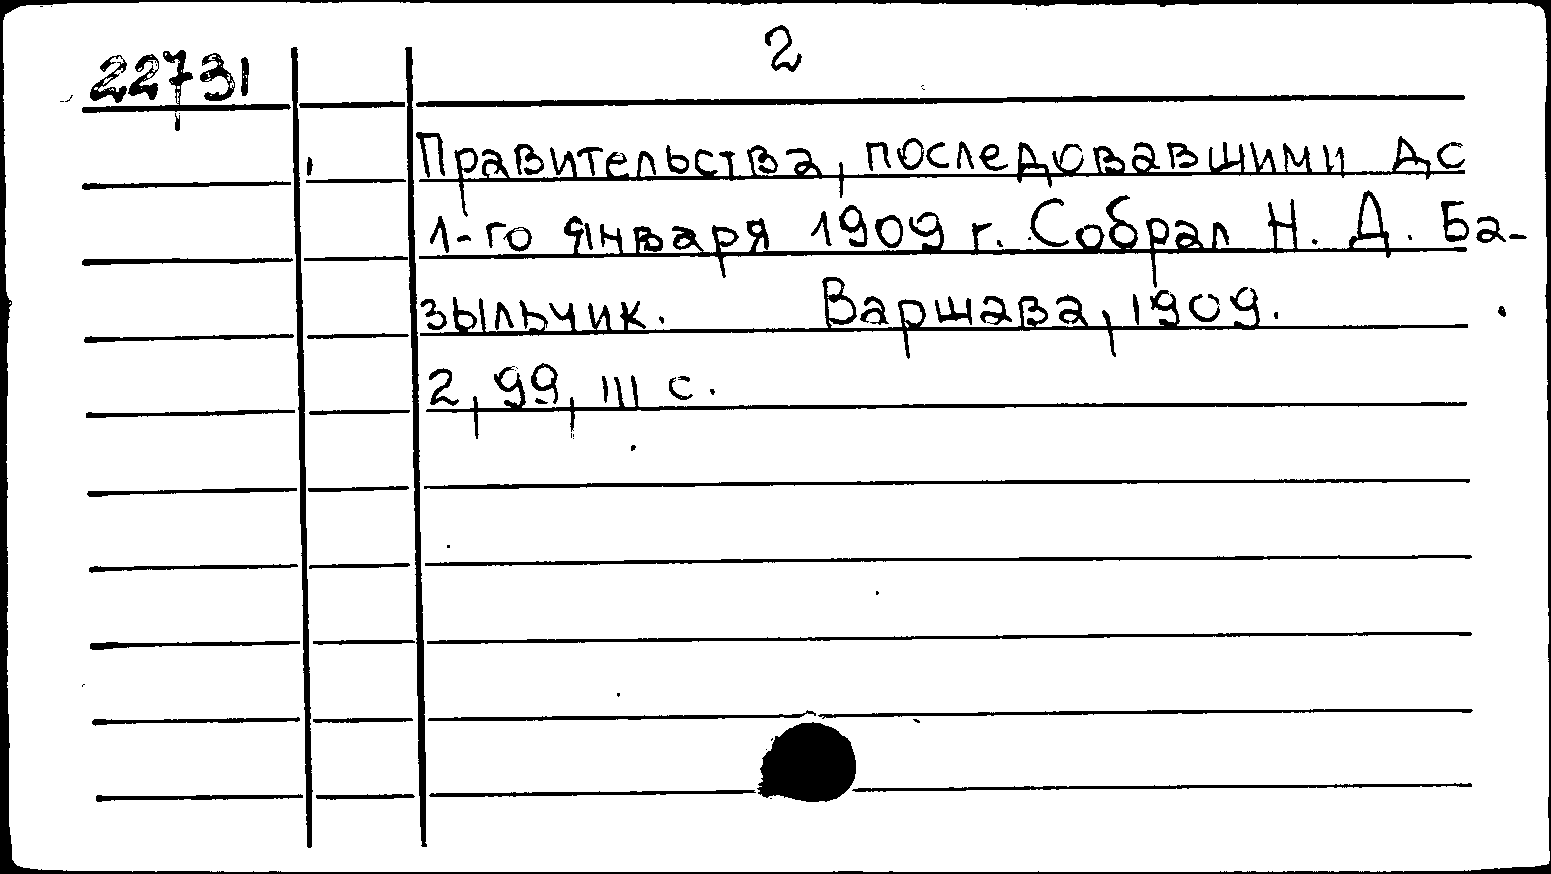 2
22731
Правительства, последовавшими до
1-го января 1909 г. Собрал Н. Д. Ба-
зыльчик. Варшава, 1909.
2, 99, III с.